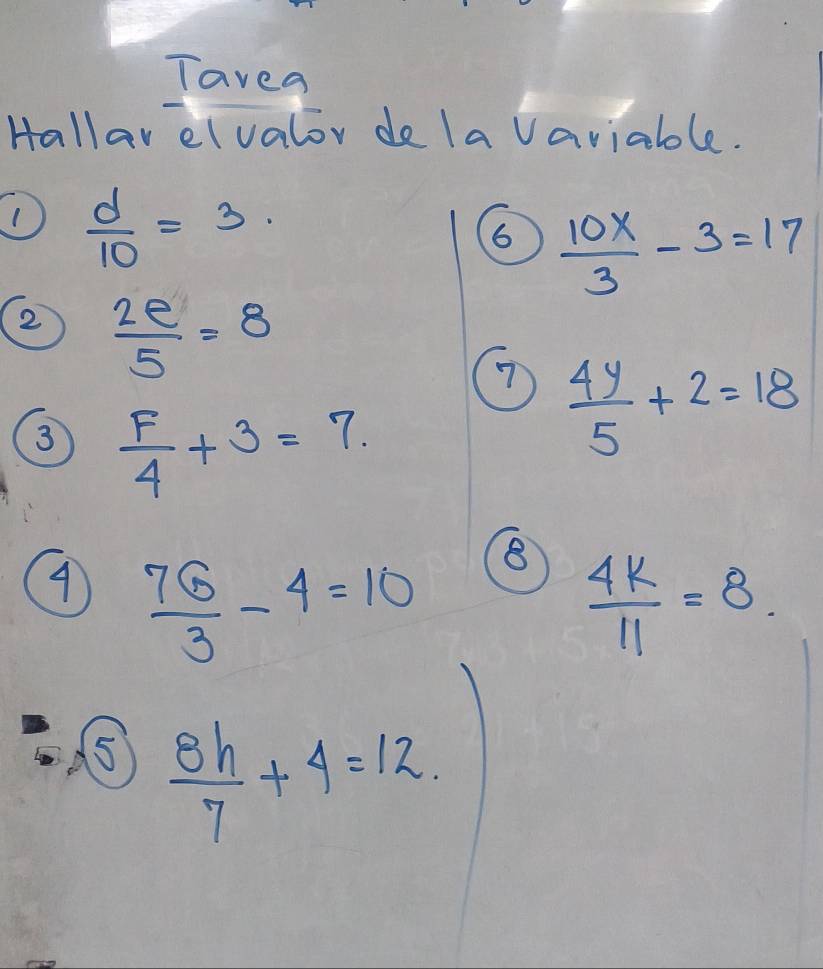 Tarea
Hallar el valor de la variable.
① d/10 = 3.
② 2e/5 = 8
③ F/4 + 3 = 7.
④ 7G/3 - 4 = 10
⑤ 8h/7 + 4 = 12.
⑥ 10x/3 - 3 = 17
⑦ 4y/5 + 2 = 18
⑧ 4K/11 = 8.